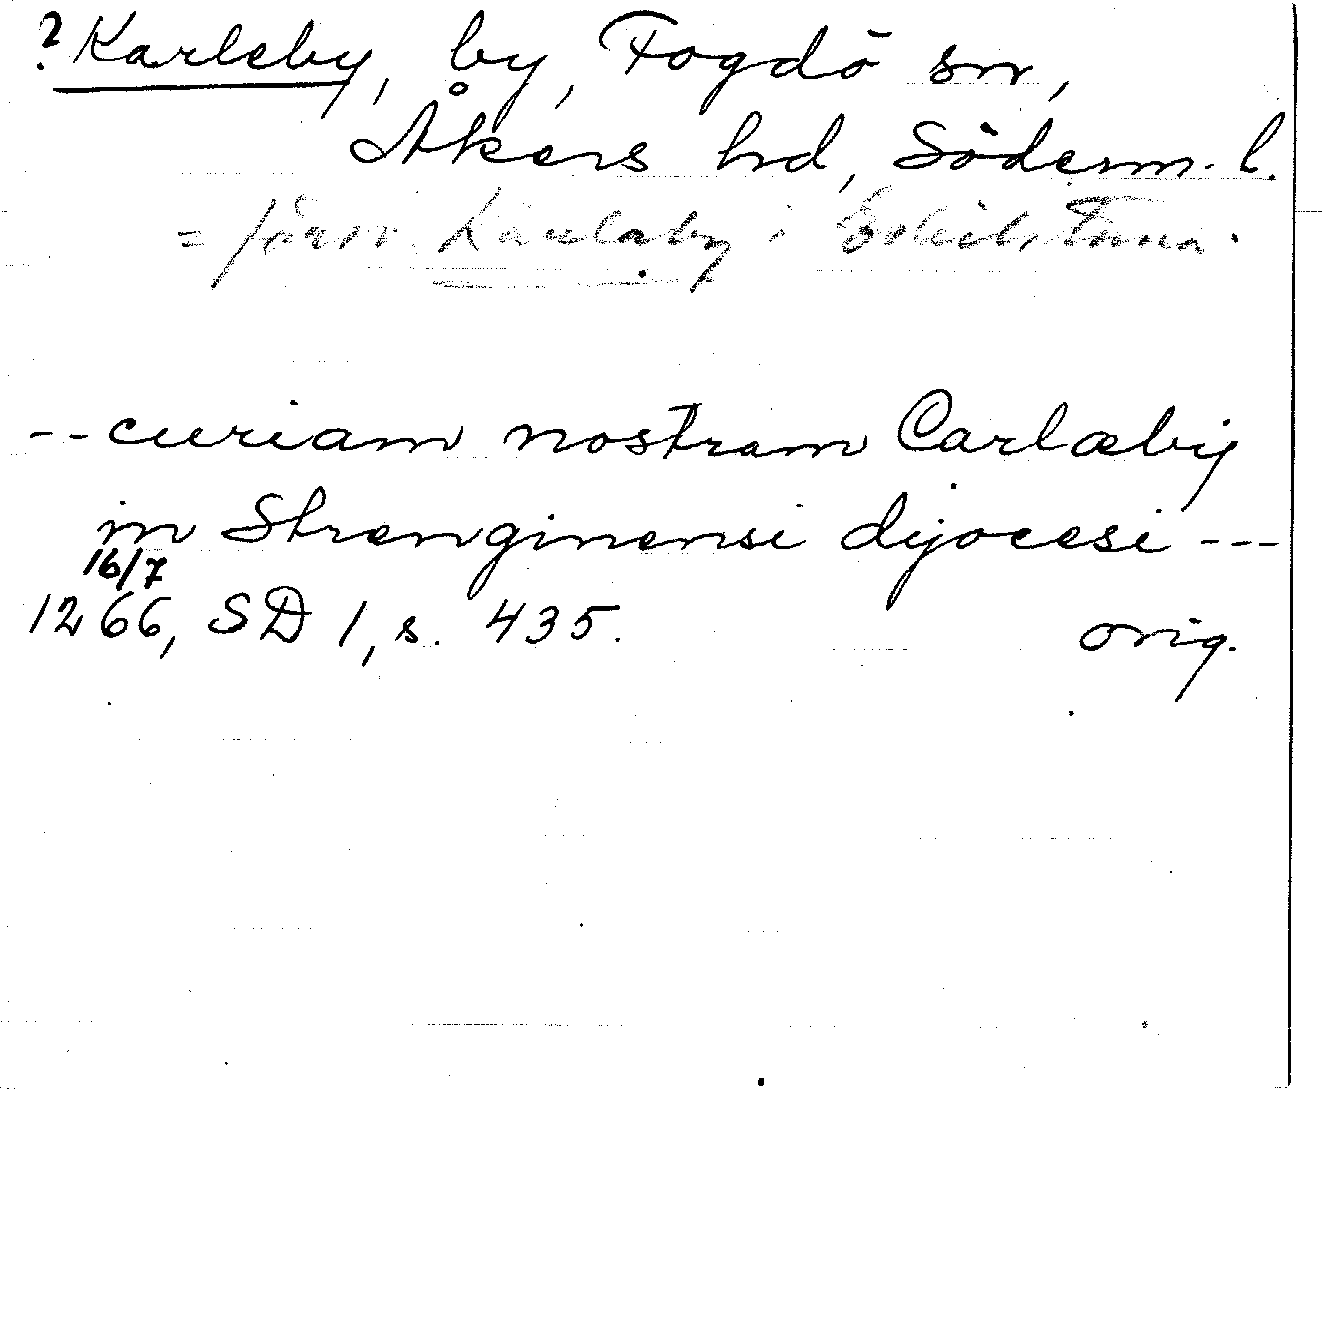 ? Karleby, by, Fogdö sn,
Åkers hd, Söderm. l.
= försv. Karlaby i Eskilstuna.
-- curiam nostram Carlæby
in Strenginensi dyocesi ---
16/7
1266, SD 1, s. 435. orig.